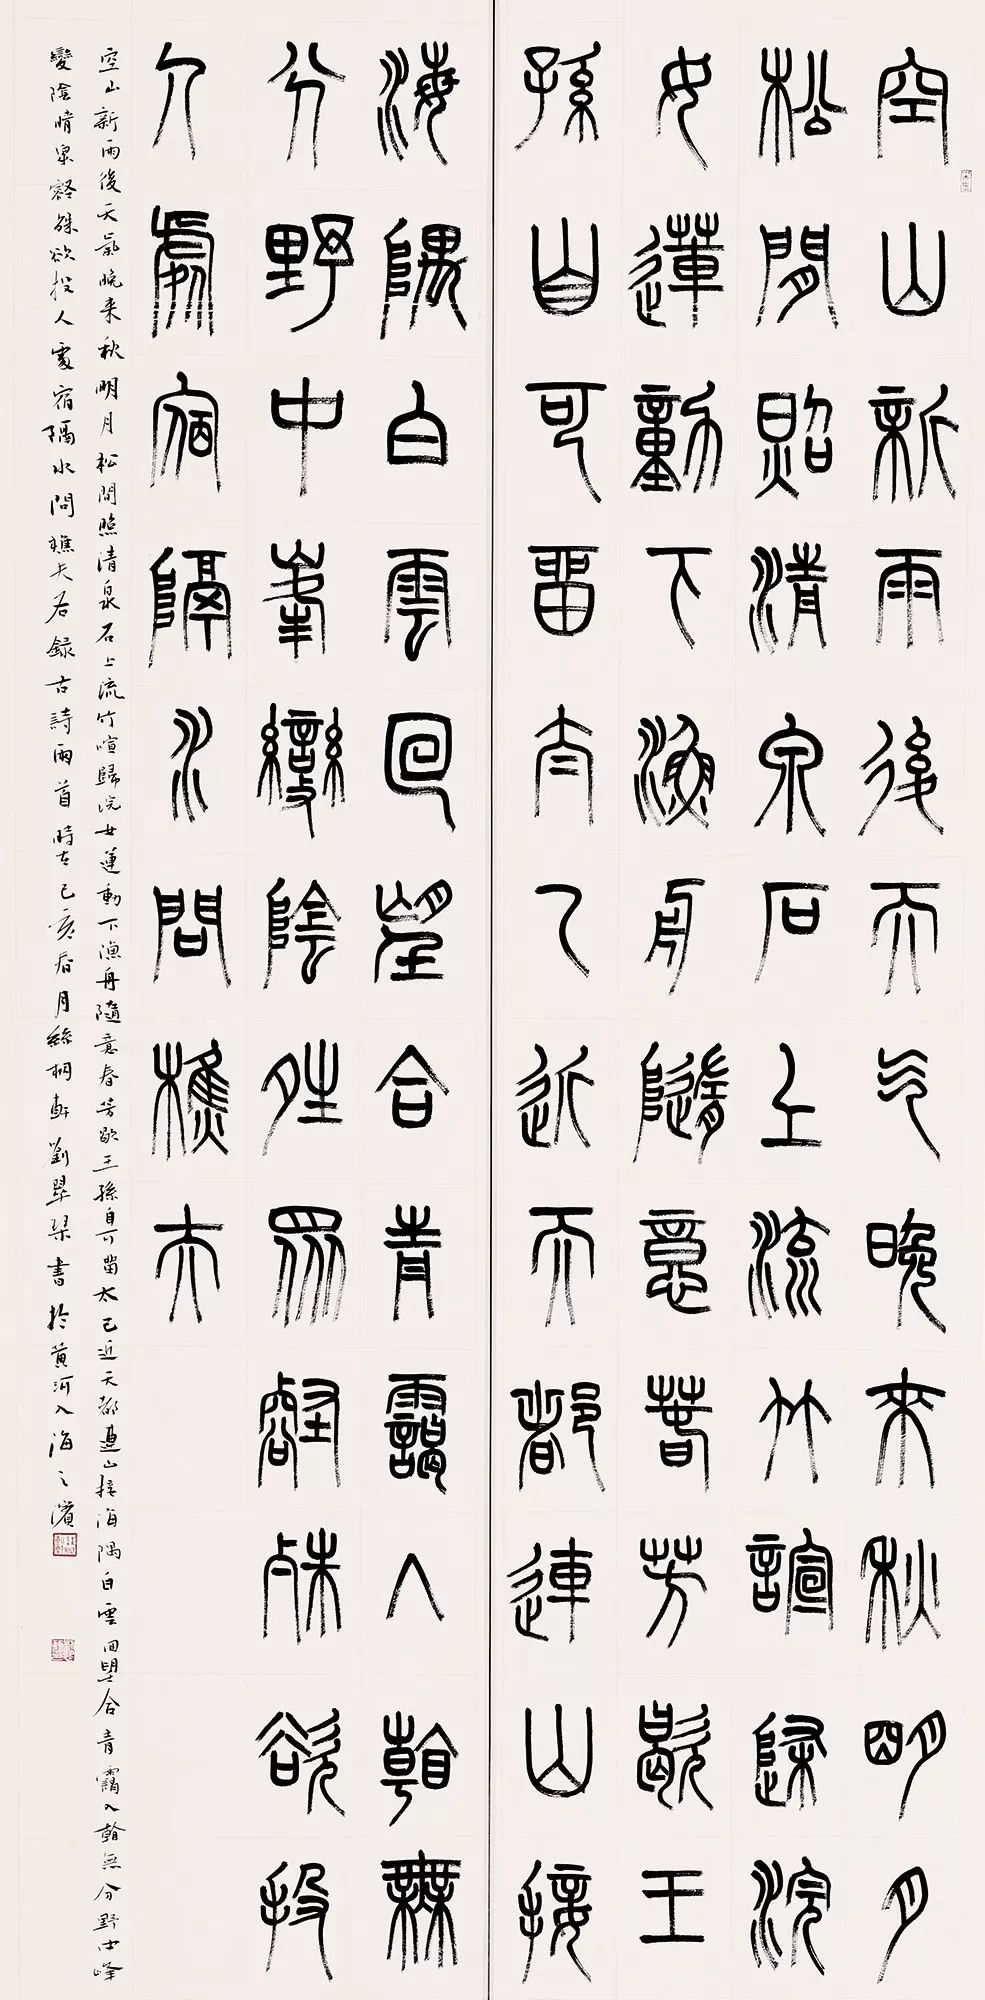 空山新雨後天气晚來秋明月
松閒照清泉石上流竹諠歸浣
女蓮動下漁舟隨意萅芳歇王
孫自可留太乙近天都連山接
海隅白雲回望合青靄入看無
分野中峯變陰姓眾壑殊欲投
人處宿隔水問樵夫
空山新雨後天氣晚来秋明月松間照清泉石上流竹喧歸浣女蓮動下漁舟隨意春芳歇王孫自可留太乙近天都連山接海隅白雲回望合青靄入看無分野中峰
變陰晴眾壑殊欲投人處宿隔水問樵夫右録古詩兩首時在己亥春月絲桐軒劉書於黄河入海之濱